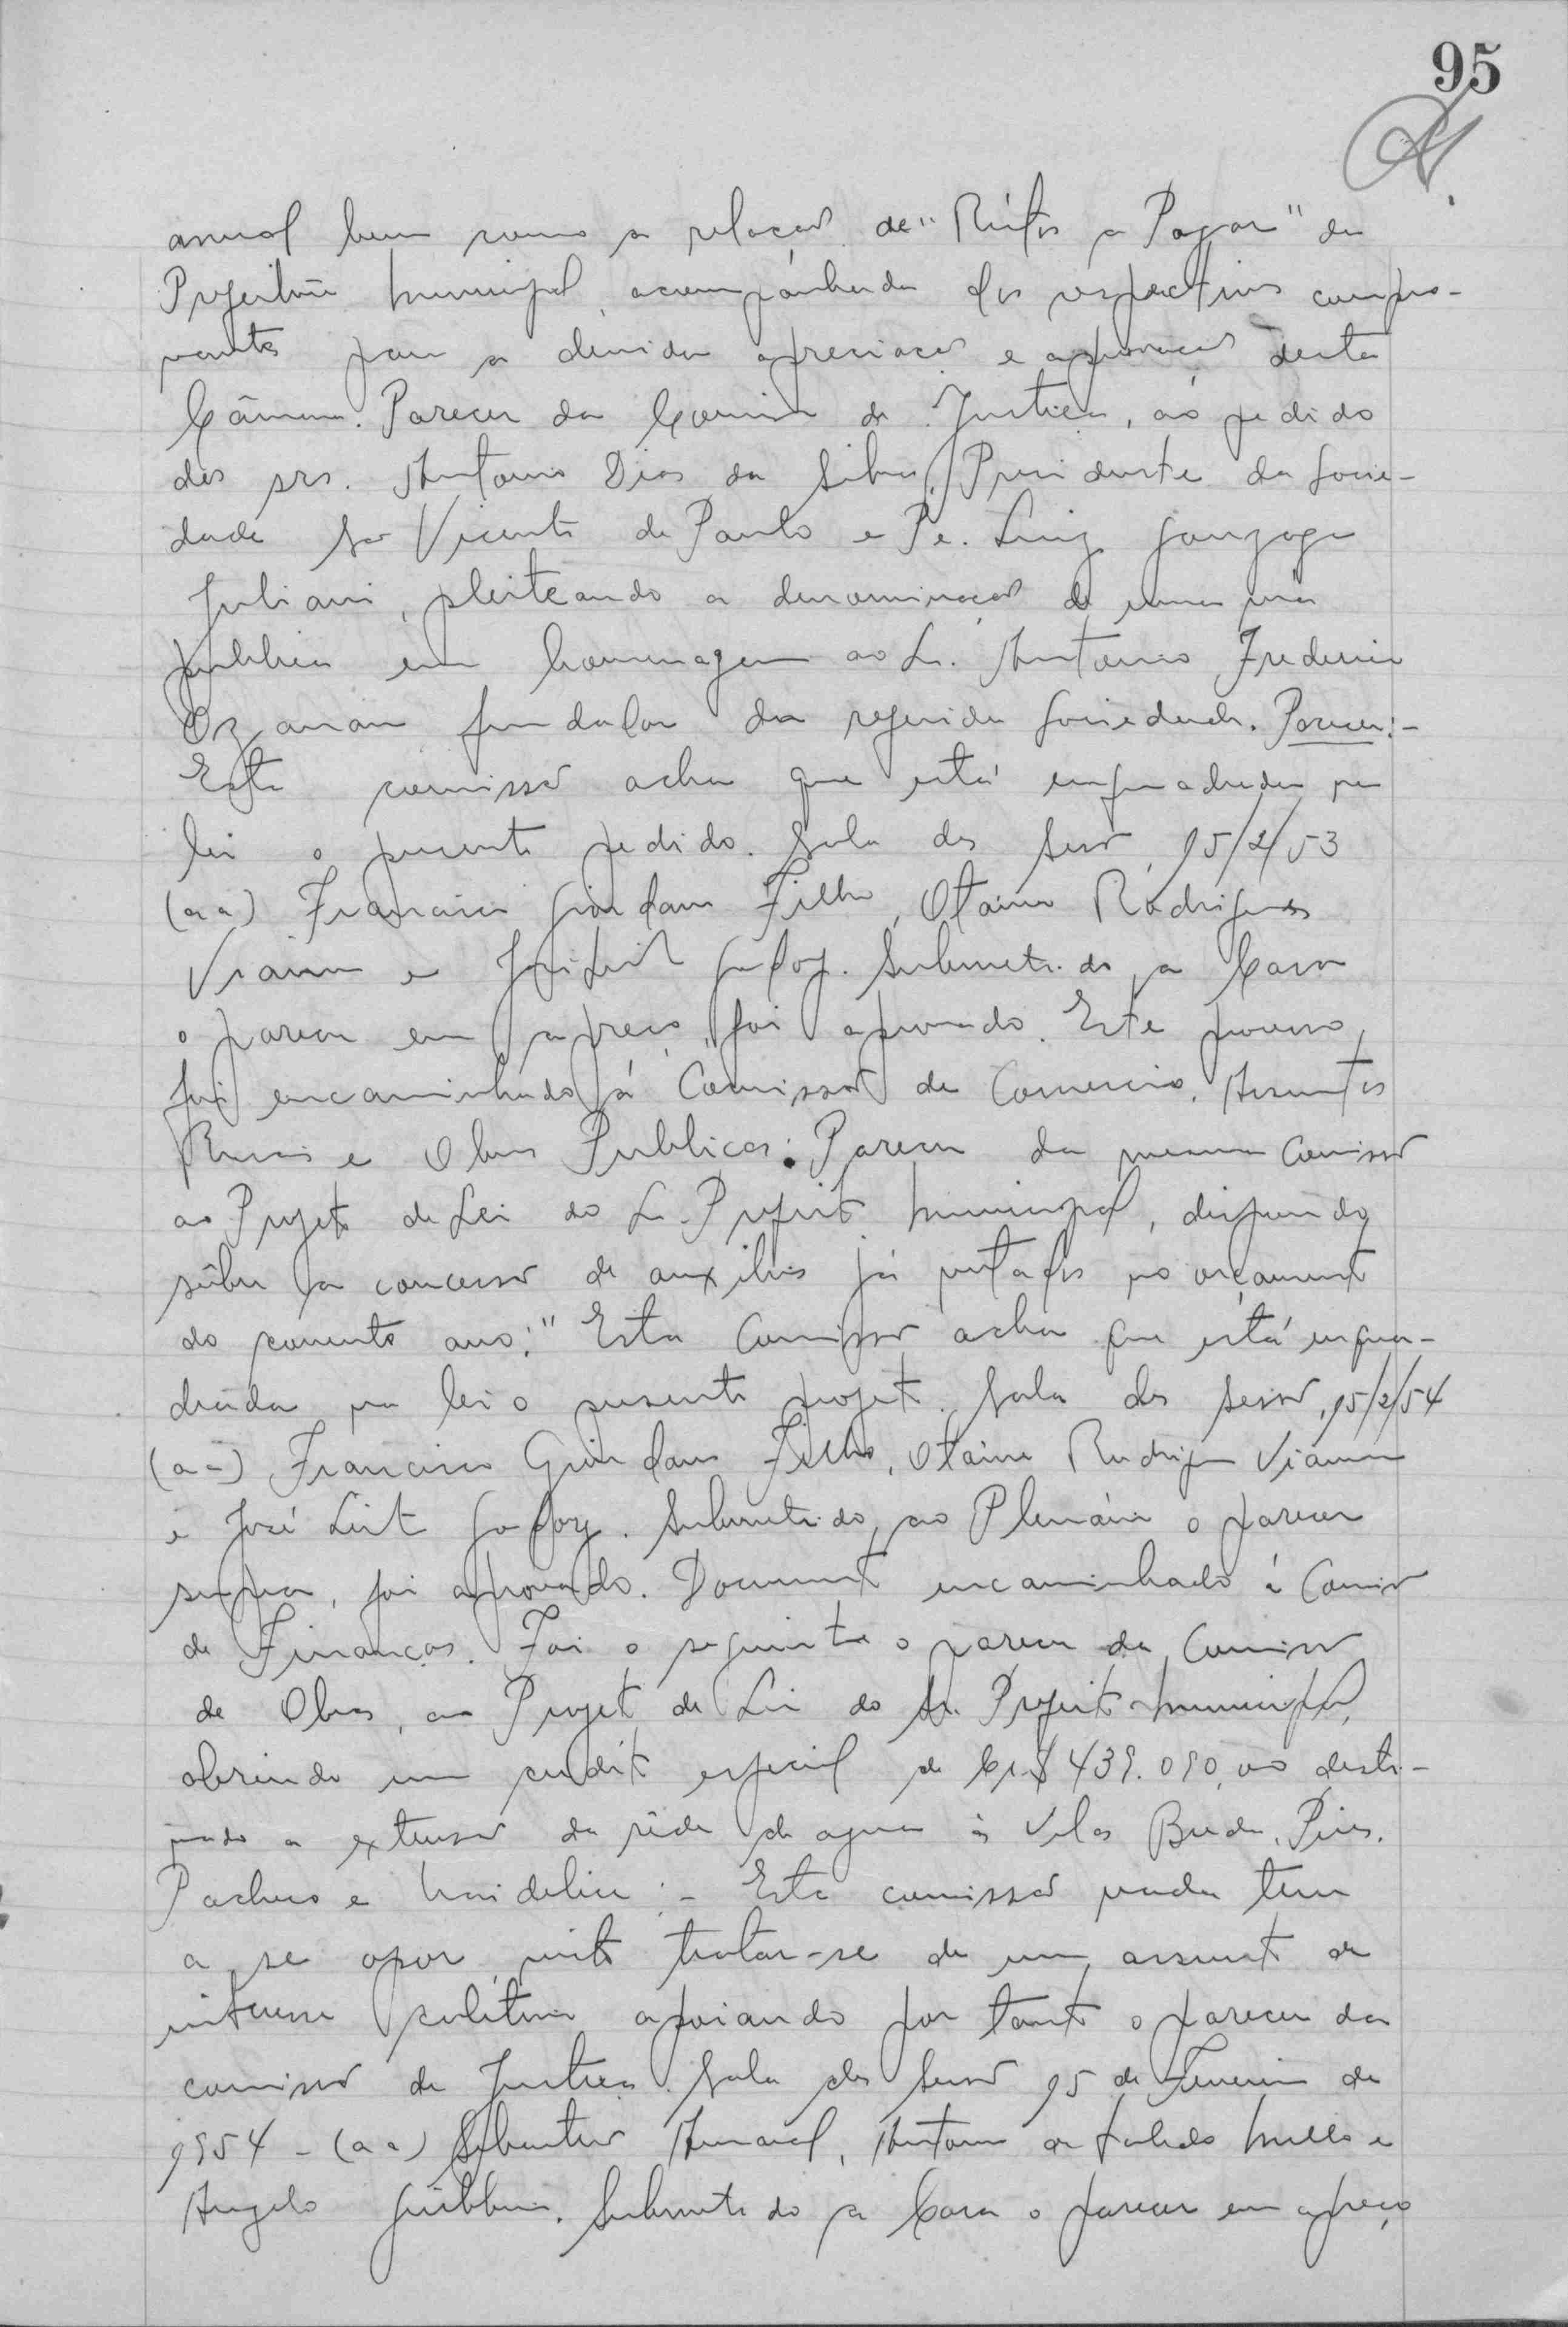 95
anual bem como a relação de "Restos a Pagar" da
Prefeitura Municipal, acompanhada dos respectivos compro-
vantes para a devida apreciação e aprovação desta
Câmara. Parecer da Comissão de Justiça, ao pedido
dos srs. Antonio Dias da Silva, Presidente da Socie-
dade São Vicente de Paulo e Pe. Luiz Gonzaga
Juliani, pleiteando a denominação de uma via
publica em homenagem ao Sr. Antonio Frederico
Ozanan fundador da referida Sociedade. Parecer:-
Esta comissão acha que está enquadrada na
lei o presente pedido. Sala das Sessões, 15/2/53
(aa) Francisco Giordano Filho, Otavio Rodrigues
Viana e José Leite Godoy. Submetido a Casa
o parecer em apreço, foi aprovado. Este processo
foi encaminhado á Comissão de Comercio, Assuntos
Rurais e Obras Publicas. Parecer da mesma Comissão
ao Projeto de Lei do Sr. Prefeito Municipal, dispondo
sôbre a concessão de auxilios já votados no orçamento
do corrente ano: "Esta Comissão acha que está enqua-
drada na lei o presente projeto. Sala das Sessões, 15/2/54
(aa) Francisco Giordano Filho, Otavio Rodrigues Viana
e José Leite Godoy. Submetido, ao Plenário o parecer
supra, foi aprovado. Documento encaminhado á Comissão
de Finanças. Foi o seguinte o parecer da Comissão
de Obras, ao Projeto de Lei do Sr. Prefeito Municipal,
abrindo um credito especial de Cr$ 439.090,00 desti-
nado a extensão da rêde de agua ás Vilas Breda, Pires,
Pacheco e :- Esta comissão nada tem
a se opor, visto tratar-se de um assunto de
interesse coletivo apoiando por tanto o parecer da
comissão de Justiça. Sala das Sessões 15 de Fevereiro de
1954 - (aa) Sebastião Amaral, Antonio de Toledo Mello e
Angelo . Submetido a Casa o parecer em apreço